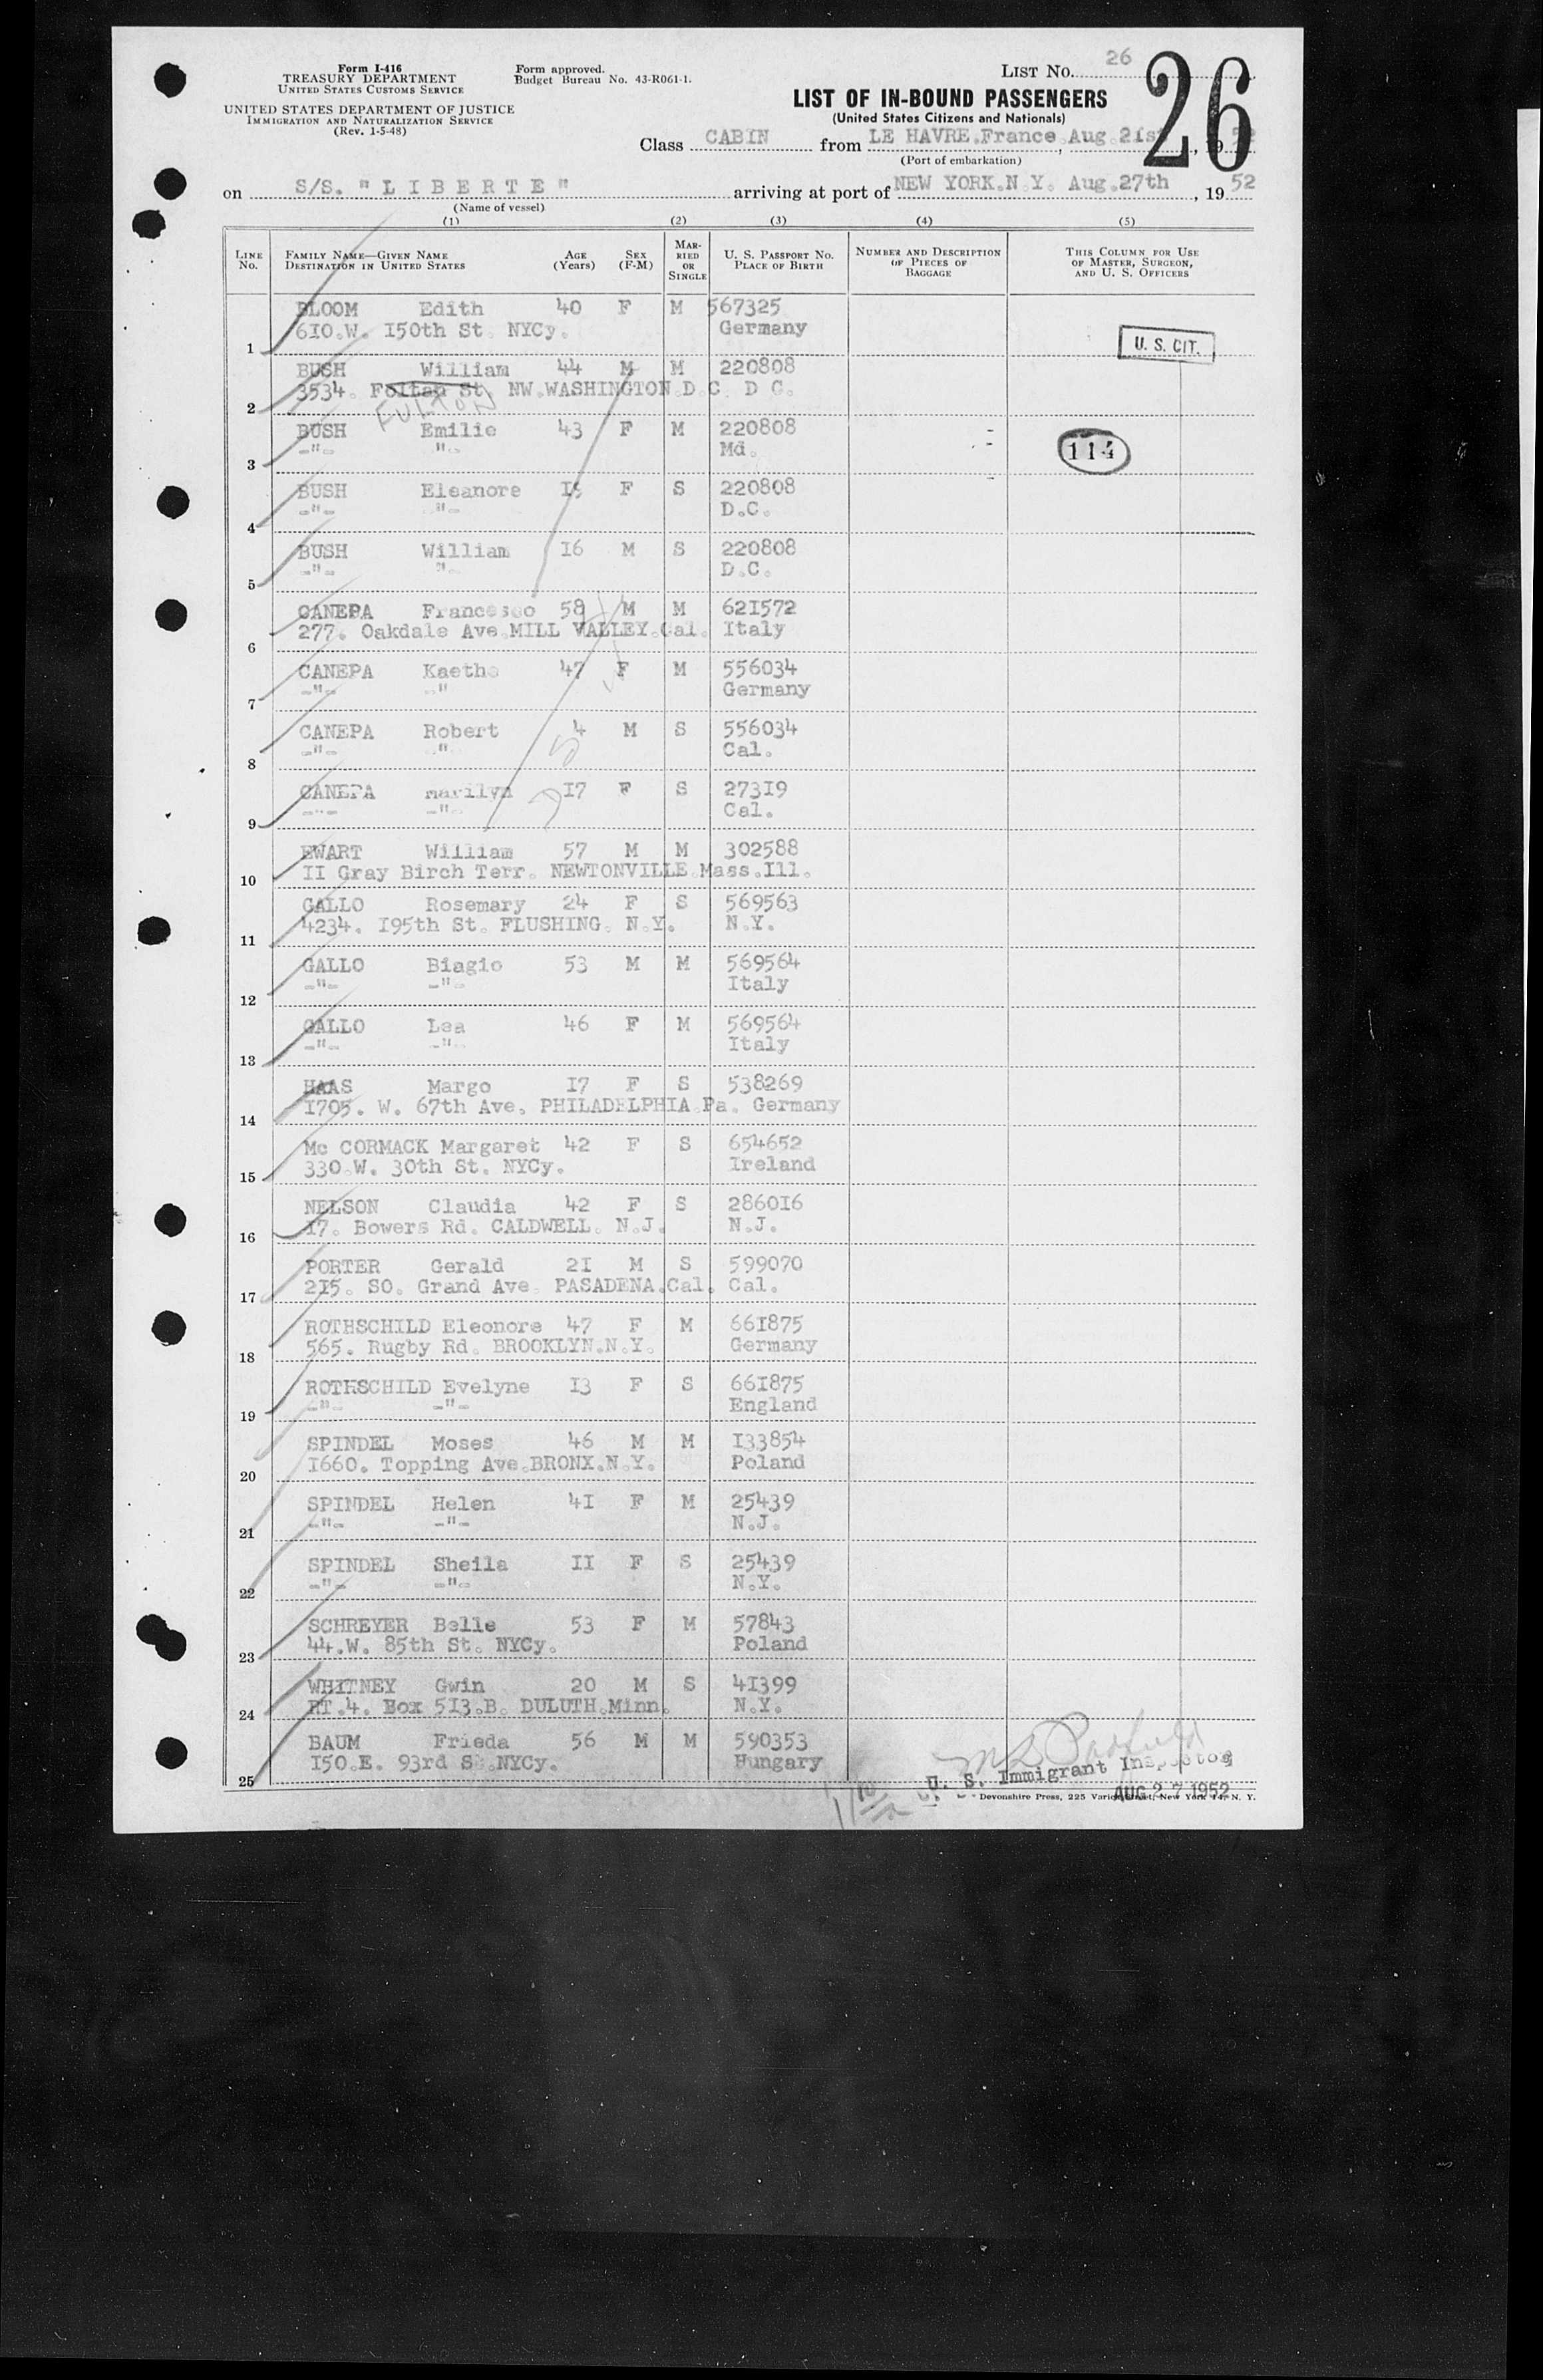 Form I-416
TREASURY DEPARTMENT
UNITED STATES CUSTOMS SERVICE
UNITED STATES DEPARTMENT OF JUSTICE
IMMIGRATION AND NATURALIZATION SERVICE
(Rev. 1-5-48)
Form approved.
Budget Bureau No. 43-R061-1.
LIST No. 26
26
LIST OF IN-BOUND PASSENGERS
(United States Citizens and Nationals)
Class CABIN from LE HAVRE.France, Aug 21st, 19
(Port of embarkation)
on S/S. "LIBERTE" arriving at port of NEW YORK.N.Y. Aug.27th, 1952
(Name of vessel)
(1) (2) (3) (4) (5)
LINE No. FAMILY NAME—GIVEN NAME DESTINATION IN UNITED STATES AGE (Years) SEX (F-M) MARRIED OR SINGLE U. S. PASSPORT No. PLACE OF BIRTH NUMBER AND DESCRIPTION OF PIECES OF BAGGAGE THIS COLUMN FOR USE OF MASTER, SURGEON, AND U. S. OFFICERS
BLOOM Edith 40 F M 567325
1 610.W. 150th St NYCy. Germany
U. S. CIT.
BUSH William 44 M M 220808
2 3534. Foltan St. NW.WASHINGTON.D.C. D C.
FULTON
BUSH Emilie 43 F M 220808
3 -"- "- Md.
114
BUSH Eleanore F S 220808
4 -"- -"- D.C.
BUSH William 16 M S 220808
5 -"- "- D.C.
CANEPA Francesco 58 M M 621572
6 277. Oakdale Ave.MILL VALLEY.Cal. Italy
CANEPA Kaethe 47 F M 556034
7 -"- -" Germany
CANEPA Robert 4 M S 556034
8 -"- -" Cal.
CANEPA Marilyn 17 F S 27319
9 -"- -"- Cal.
EWART William 57 M M 302588
10 II Gray Birch Terr. NEWTONVILLE.Mass.Ill.
GALLO Rosemary 24 F S 569563
11 4234. 195th St. FLUSHING. N.Y. N.Y.
GALLO Biagio 53 M M 569564
12 -"- -"- Italy
GALLO Lea 46 F M 569564
13 -"- -"- Italy
HAAS Margo 17 F S 538269
14 1705. W. 67th Ave. PHILADELPHIA.Pa. Germany
Mc CORMACK Margaret 42 F S 654652
15 330.W. 30th St. NYCy. Ireland
NELSON Claudia 42 F S 286016
16 17. Bowers Rd. CALDWELL. N.J. N.J.
PORTER Gerald 21 M S 599070
17 215. SO. Grand Ave. PASADENA.Cal. Cal.
ROTHSCHILD Eleonore 47 F M 661875
18 565. Rugby Rd. BROOKLYN.N.Y. Germany
ROTHSCHILD Evelyne 13 F S 661875
19 -"- -"- England
SPINDEL Moses 46 M M 133854
20 1660. Topping Ave.BRONX.N.Y. Poland
SPINDEL Helen 41 F M 25439
21 -"- -"- N.J.
SPINDEL Sheila II F S 25439
22 -"- -"- N.Y.
SCHREYER Belle 53 F M 57843
23 44.W. 85th St. NYCy. Poland
WHITNEY Gwin 20 M S 41399
24 RT.4. Box 513.B. DULUTH.Minn. N.Y.
BAUM Frieda 56 M M 590353
25 150.E. 93rd St.NYCy. Hungary
U. S. Immigrant Inspector
AUG 27 1952
Devonshire Press, 225 Varick Street, New York 14, N. Y.